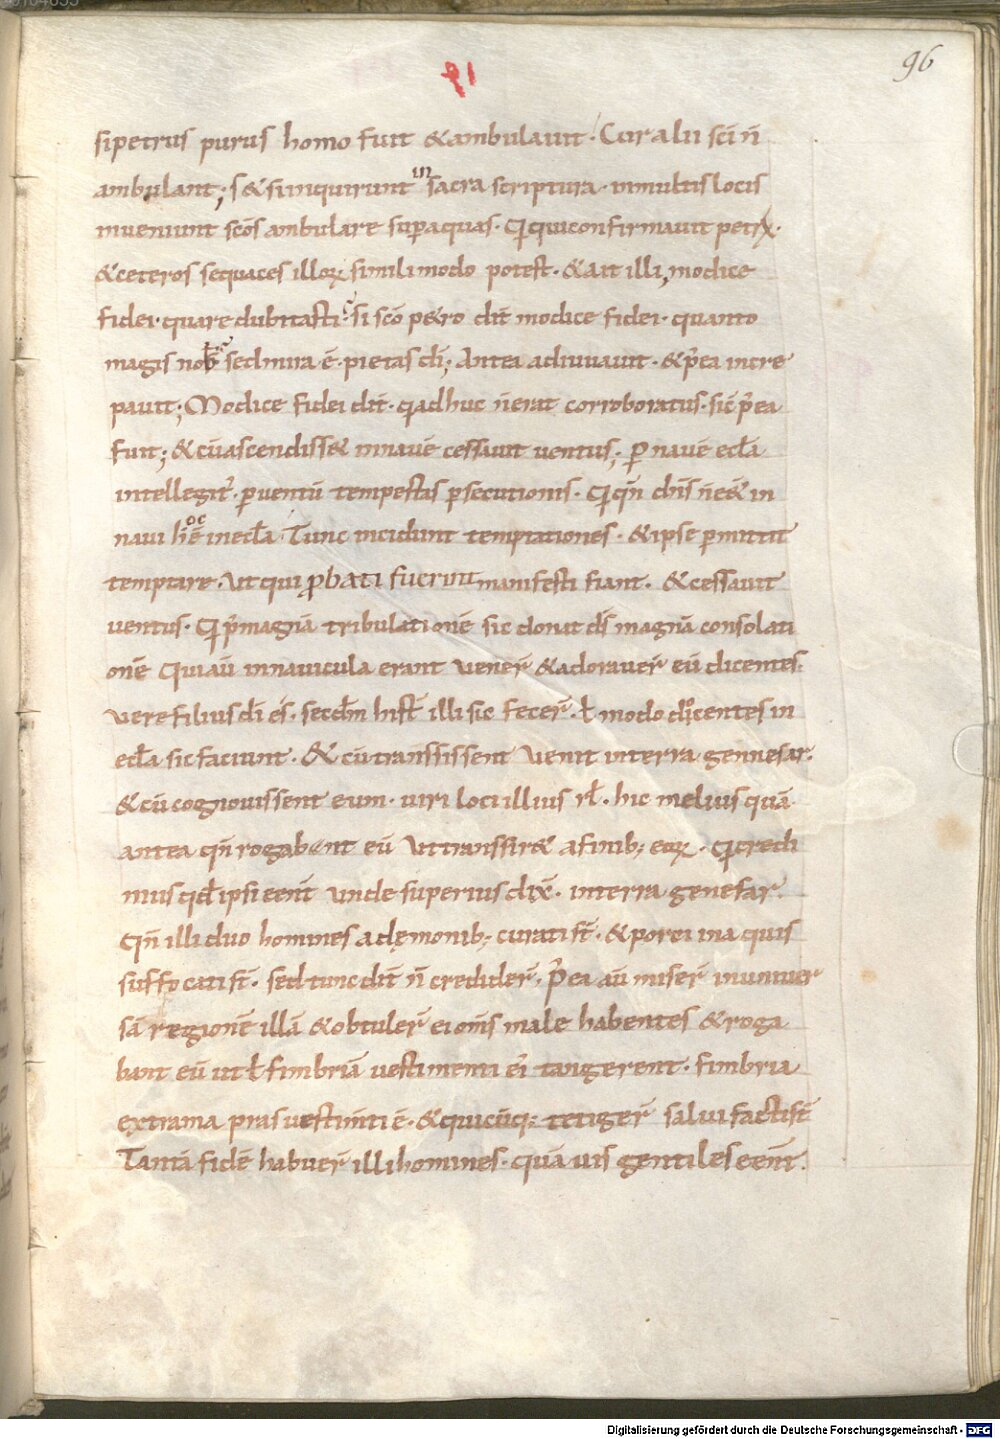 96
91
sipetrus purus homo fuit &ambulauit. Cur alii sc̄i n̄
ambulant; s&siinquirunt in sacra scriptura. inmultis locis
inueniunt sc̄os ambulare sup̄aquas. Q̇quiconfirmauit petrū.
&ceteros sequaces illoꝝ similimodo potest. &ait illi, modice
fidei. quare dubitasti. Si sc̄o p&ro dic̄t modice fidei. quanto
magis nob̄ sedmira ē. pietas dī; Antea adiuuauit. &p̄ea incre
pauit; Modice fidei dic̄t. q̇adhuc n̄erat corroboratus. sic p̄ea
fuit; &cūascendiss& innauē cessauit uentus; ꝑ nauē ecl̄a
intellegit̄. ꝑuentū tempestas ꝑsecutionis. Q̇qn̄ dn̄s n̄e& in
naui hoc ē inecl̄a. Tunc incidunt temptationes. &ipse ꝑmittit
temptare. Ut qui ꝓbati fuerint manifesti fiant. &cessauit
uentus. Q̇ p̄magnā tribulationē sic donat dīs magnā consolati
onē Quiaū innauicula erant uener̄ &adorauer̄ eū dicentes.
uerefilius dī es. secdm̄ hist̄ illi sic fecer̄. ł modo docentes in
ecl̄a sic faciunt. & cū transsissent uenit interra gennesar.
&cū cognouissent eum. uiri loci illius rł. hic melius quā
antea qn̄ rogabant eū uttranssir& afinib; eoꝝ. Q̇credi
mus qđ ipsi eent̄ unde superius dix̄. interra genesar.
Qn̄ illi duo homines adęmonib; curati st̄. &porci ina quis
suffocati st̄. sed tunc dic̄t n̄ credider̄, p̄ea aū miser̄ inuniuer
sā regionē illā &obtuler̄ ei om̄s male habentes &roga
bant eū utł fimbriā uestimenti ei᷒ tangerent. fimbria
extrama pras uestim̄ti ē. &quicūq; tetiger̄ salui facti st̄
Tantā fidē habuer̄ illi homines. quā uis gentiles eent̄.
Digitalisierung gefördert durch die Deutsche Forschungsgemeinschaft - DFG